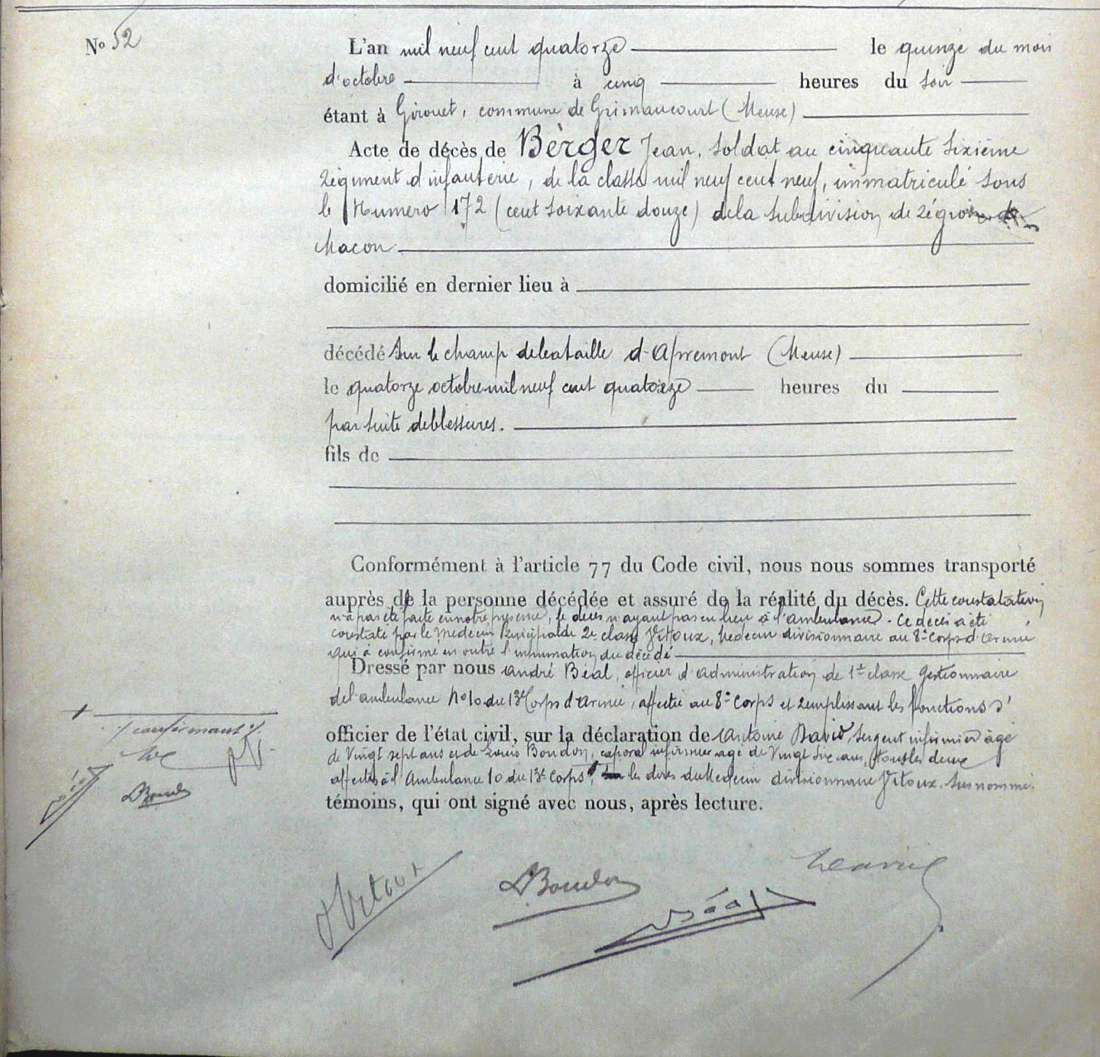 No 52
L'an mil neuf cent quatorze le quinze du mois
d'octobre à cinq heures du soir
étant à Girouet, commune de Grimaucourt (Meuse)
Acte de décès de Bèrger Jean, soldat au cinquante sixième
régiment d'infanterie, de la classe mil neuf cent neuf, immatriculé sous
le Numero 172 (cent soixante douze) de la subdivision de région
Macon
domicilié en dernier lieu à
décédé sur le champ de bataille d'Apremont (Meuse)
le quatorze octobre mil neuf cent quatorze heures du
par suite de blessures.
fils de
Conformément à l'article 77 du Code civil, nous nous sommes transporté
auprès de la personne décédée et assuré de la réalité du décès. Cette constatation
n'a pas été faite en notre présence, le décès n'ayant pas eu lieu à l'ambulance. Ce décès a été
constaté par le Médecin principal de 2e classe Vitoux, médecin divisionnaire au 8e Corps d'armée
qui a confirmé en outre l'inhumation du décédé
Dressé par nous André Béal, officier d'administration de 1re classe gestionnaire
de l'ambulance No 10 du 13e Corps d'Armée, affectée au 8e Corps et remplissant les fonctions d'
officier de l'état civil, sur la déclaration de Antoine David sergent infirmier âgé
de vingt sept ans et de Louis Boudon, caporal infirmier agé de vingt six ans, tous les deux
affectés à l'Ambulance 10 du 13e Corps les dires du Médecin divisionnaire Vitoux. susnommé
témoins, qui ont signé avec nous, après lecture.
confirmant
LBoudon
Vitoux
LBoudon
Béal